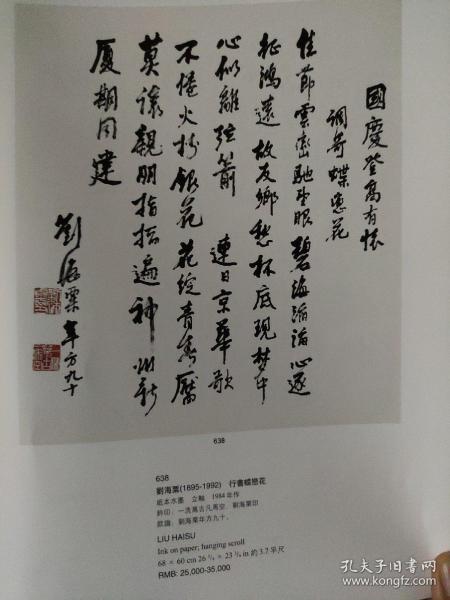 國慶登高有懷
調寄蝶戀花
佳節雲峦馳望眼碧海滔滔心逐
征鴻遠故友鄉愁杯底現梦中
心似離弦箭 連日京華歌
不倦火树銀花花綻青春靨
莫讓親朋指掐遍神州新
廈期同建
劉海粟年方九十
638
638
劉海粟(1895-1992) 行書蝶戀花
紙本水墨 立軸 1984年作
鈐印：一洗萬古凡馬空、劉海粟印
款識：劉海粟年方九十。
LIU HAISU
Ink on paper; hanging scroll
68 × 60 cm 26 3/4 × 23 5/8 in 約 3.7 平尺
RMB: 25,000-35,000
孔夫子旧书网